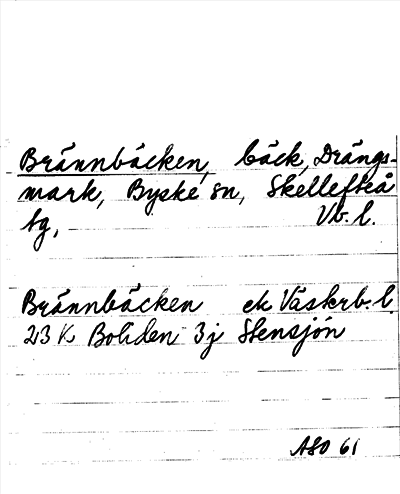 Brännbäcken, bäck, Drängs-
mark, Byske sn, Skellefteå
tg, Vb. l.
Brännbäcken ek Västerb. l.
23 K Boliden 3j Stensjön
ASO 61